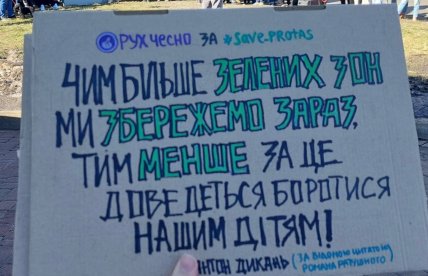 РУХ ЧЕСНО ЗА #SAVE-PROTAS
ЧИМ БІЛЬШЕ ЗЕЛЕНИХ ЗОН
МИ ЗБЕРЕЖЕМО ЗАРАЗ,
ТИМ МЕНШЕ ЗА ЦЕ
ДОВЕДЕТЬСЯ БОРОТИСЯ
НАШИМ ДІТЯМ!
НТОН ДИКАНЬ (ЗА ВІДОМОЮ ЦИТАТОЮ
РОМАНА РАТУШНОГО)